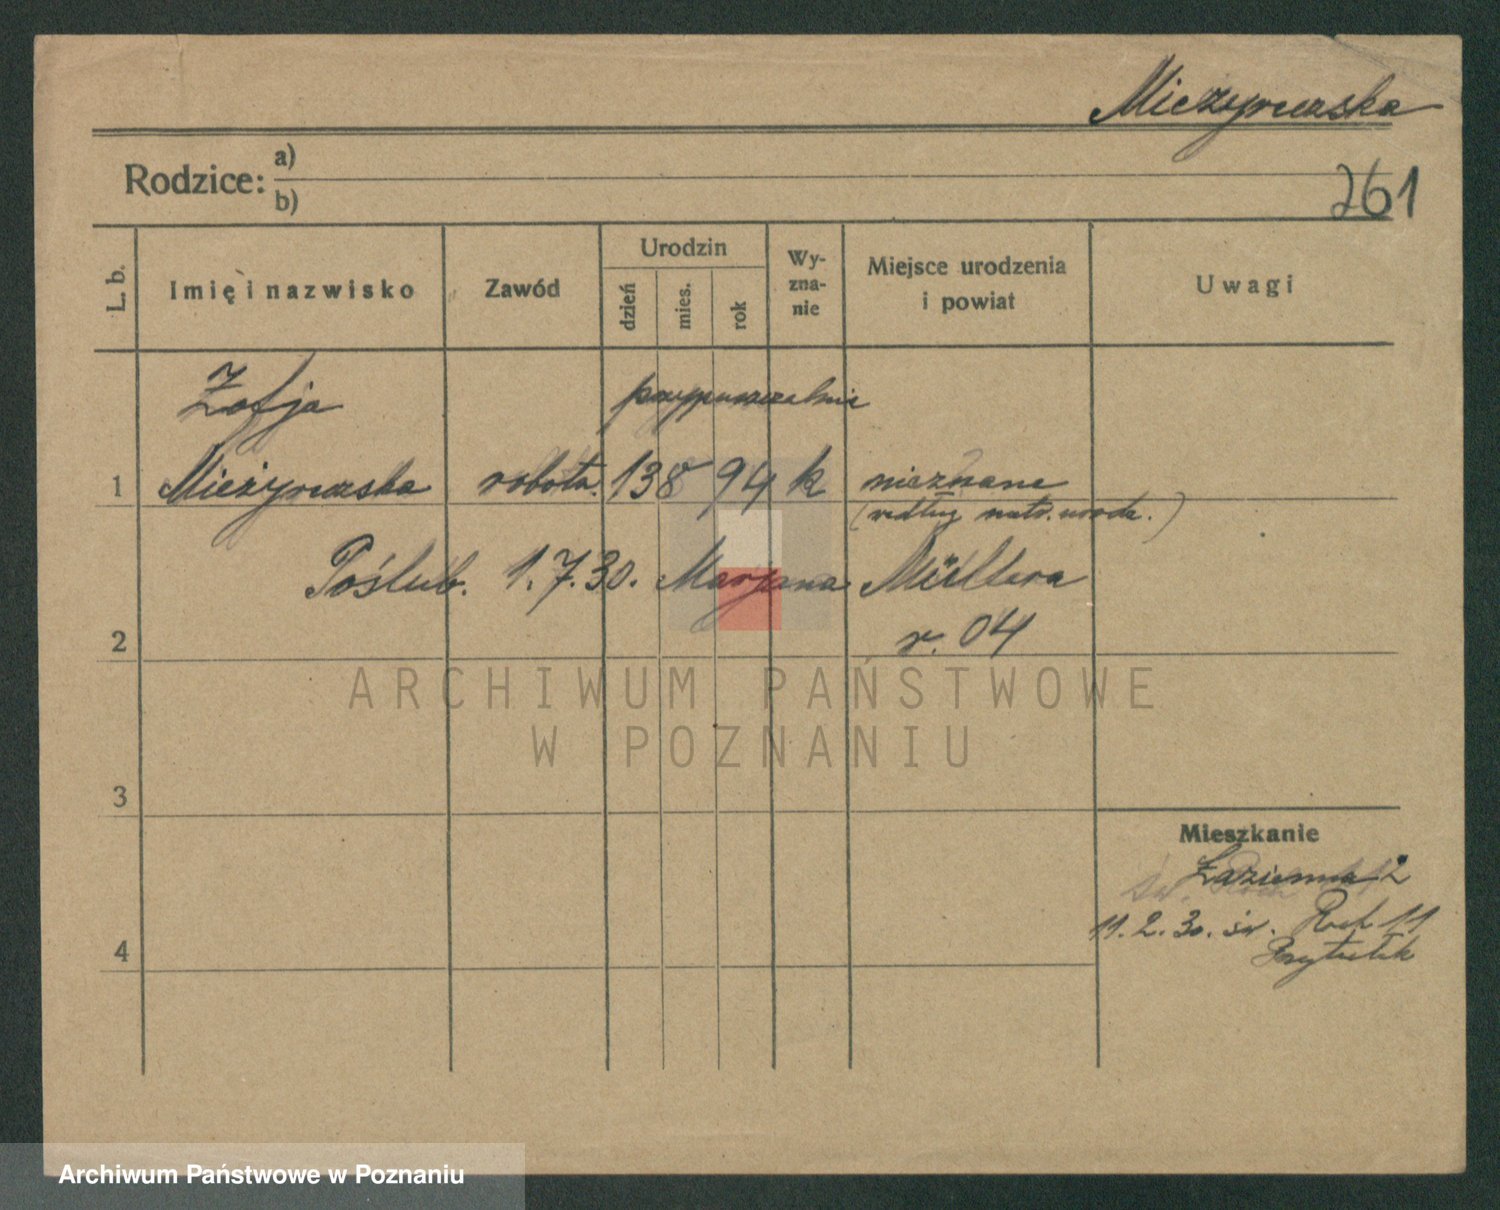 Mieżyńska
Rodzice: a)
b)
261
L. b.
Imię i nazwisko
Zawód
Urodzin
dzień
mies.
rok
Wy-
zna-
nie
Miejsce urodzenia
i powiat
Uwagi
Zofja
przypuszczalnie
1
robotn. 13 8 94 k nieznane
(według metr. urodz.)
Poślub. 1.7.30. Marjana Müllera
r. 04
2
ARCHIWUM PAŃSTWOWE
W POZNANIU
3
Mieszkanie
Łazienna 2
11.2.30. św. Roch 11
Przytułek
4
Archiwum Państwowe w Poznaniu